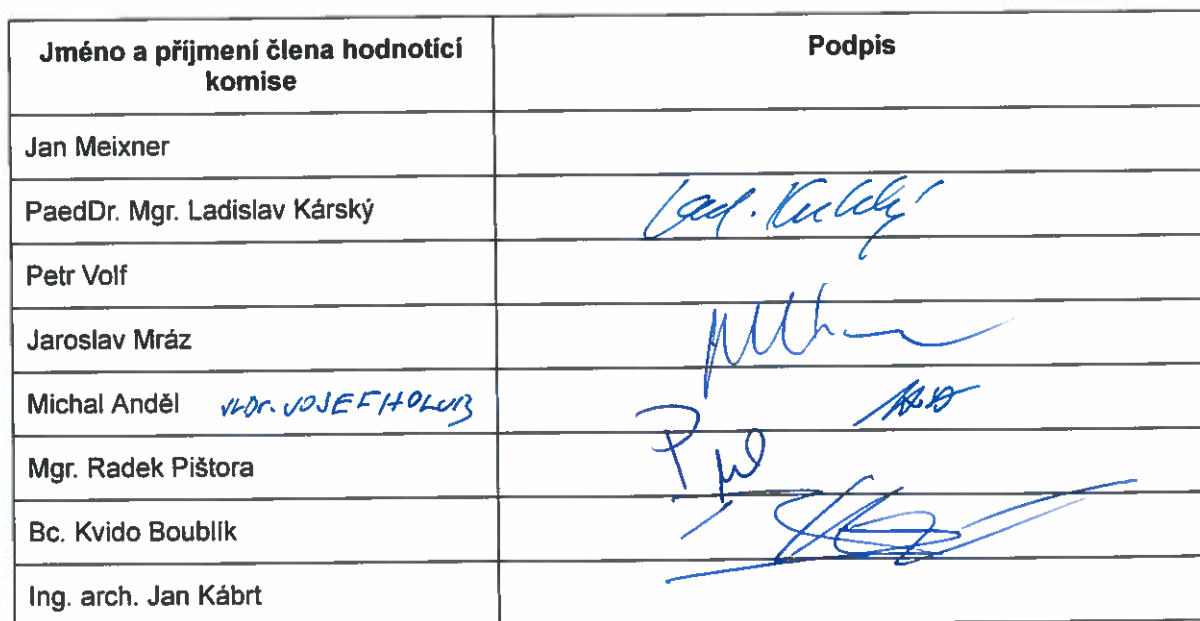 Jméno a příjmení člena hodnotící
komise
Podpis
Jan Meixner
PaedDr. Mgr. Ladislav Kárský
Petr Volf
Jaroslav Mráz
Michal Anděl JOSEF HOLUB
Mgr. Radek Pištora
Bc. Kvido Boublík
Ing. arch. Jan Kábrt